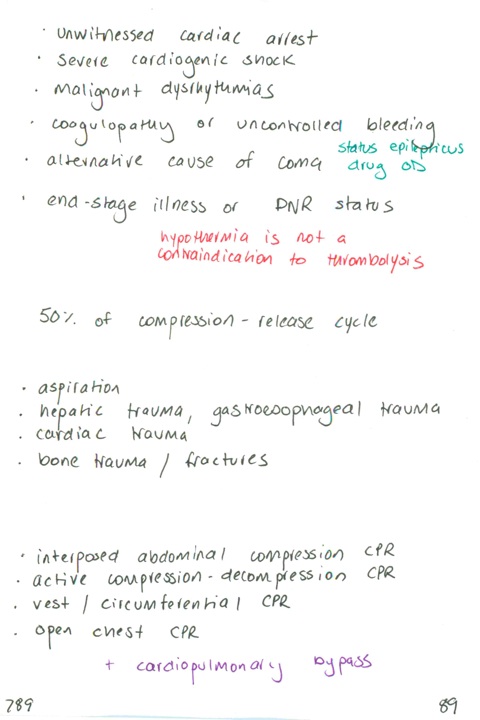 · unwitnessed cardiac arrest
· severe cardiogenic shock
· malignant dysrhythmias
· coagulopathy or uncontrolled bleeding
· alternative cause of coma status epilepticus
drug OD
· end-stage illness or DNR status
hypothermia is not a
contraindication to thrombolysis
50% of compression - release cycle
· aspiration
· hepatic trauma, gastroesophageal trauma
· cardiac trauma
· bone trauma / fractures
· interposed abdominal compression CPR
· active compression - decompression CPR
· vest / circumferential CPR
· open chest CPR
+ cardiopulmonary bypass
789 89